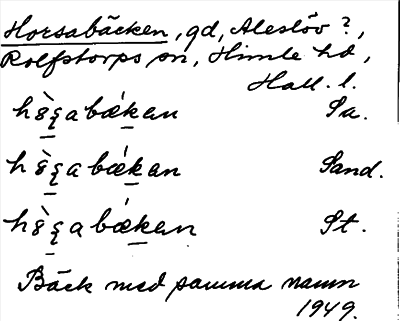 Horsabäcken, gd, Aleslöv?,
Rolfstorps sn, Himle hd,
Hall. l.
Sa.
Sand.
St.
Bäck med samma namn
1949.